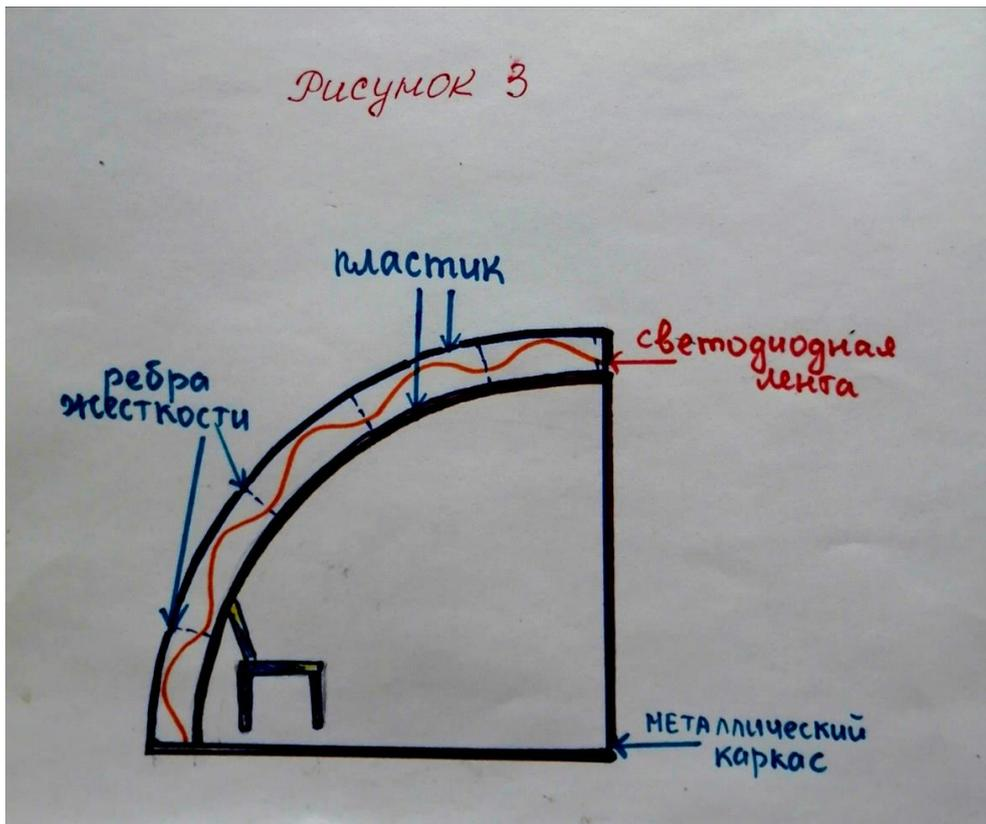 Рисунок 3
пластик
светодиодная
лента
ребра
жесткости
металлический
каркас